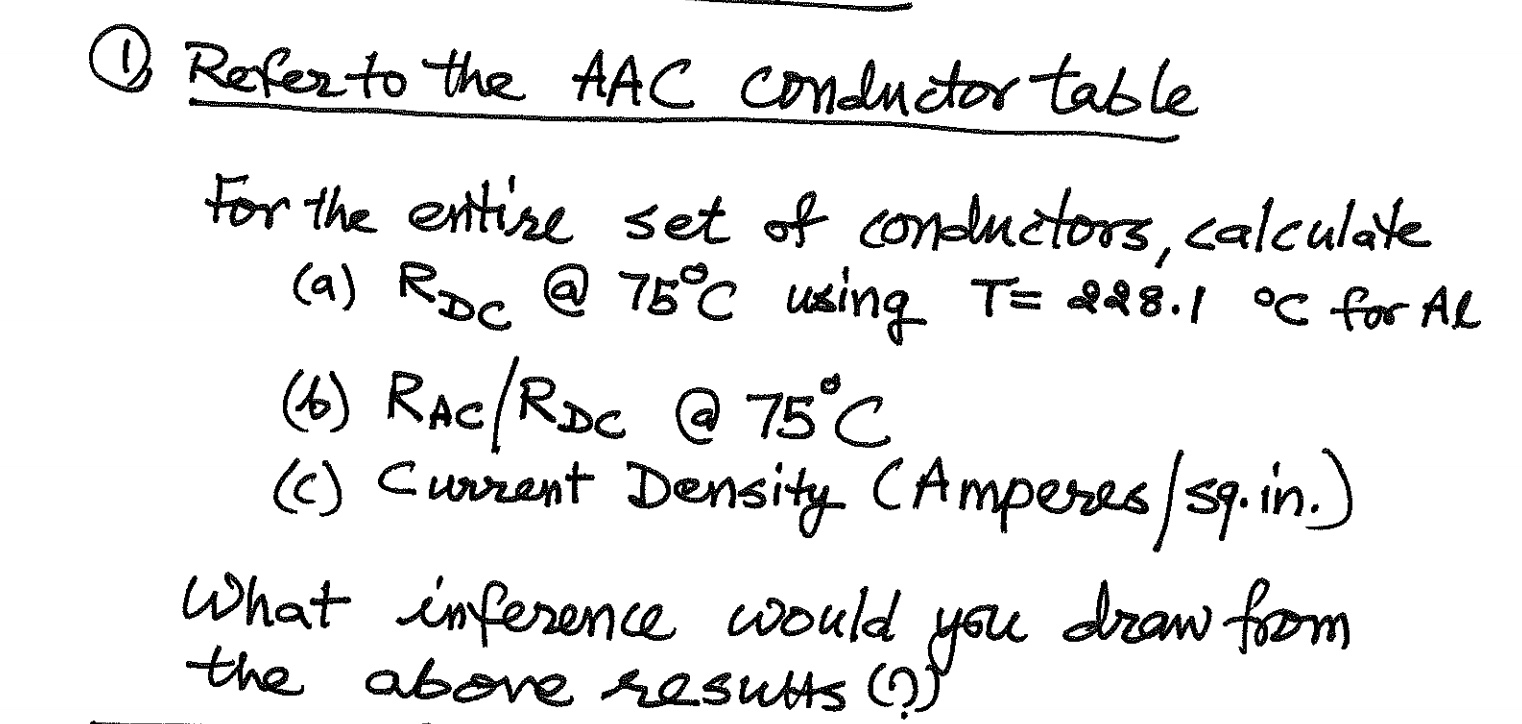 ① Refer to the AAC conductor table
For the entire set of conductors, calculate
(a) RDC @ 75°C using T= 228.1 °C for Al
(b) RAC/RDC @ 75°C
(c) Current Density (Amperes/sq.in.)
What inference would you draw from
the above results (?)